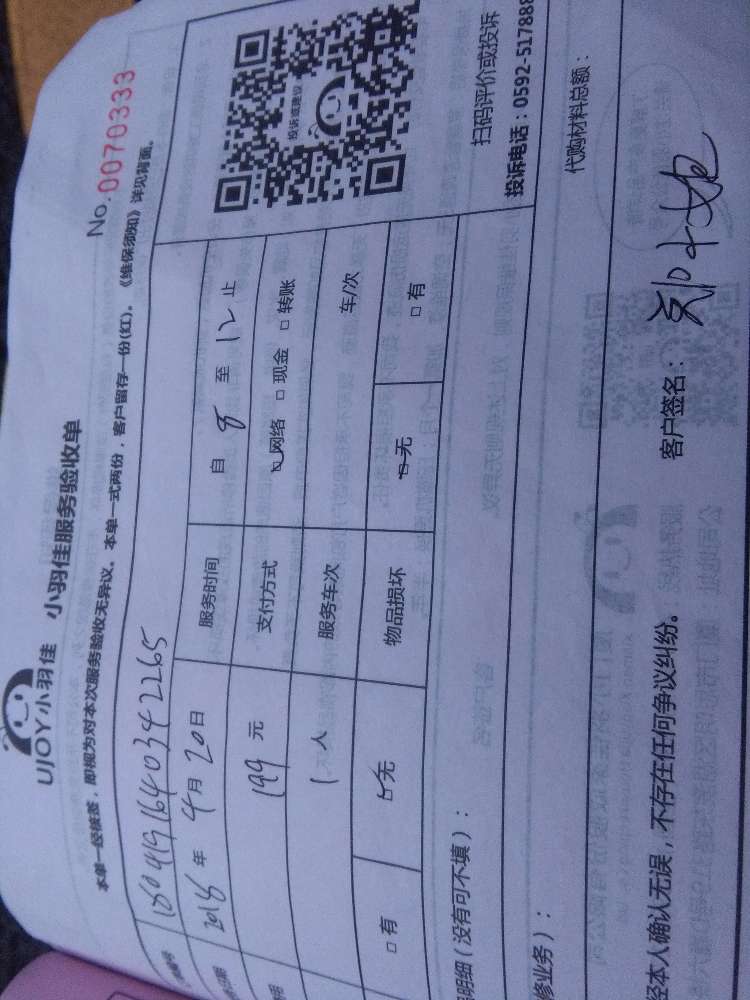 UJOY小羽佳 小羽佳服务验收单
No. 0070333
本单一经核签，即视为对本次服务验收无异议。本单一式两份，客户留存一份(红)。《维保须知》详见背面。
编号 1804191640342265
日期 2018 年 4 月 20 日 服务时间 自 8 至 12 止
199 元 支付方式 网络 □ 现金 □ 转账
1 人 服务车次 车/次
□ 有 无 物品损坏 无 □ 有
投诉或建议
扫码评价或投诉
投诉电话：0592-517888
明细（没有可不填）：
代购材料总额：
修业务）：
经本人确认无误，不存在任何争议纠纷。 客户签名：